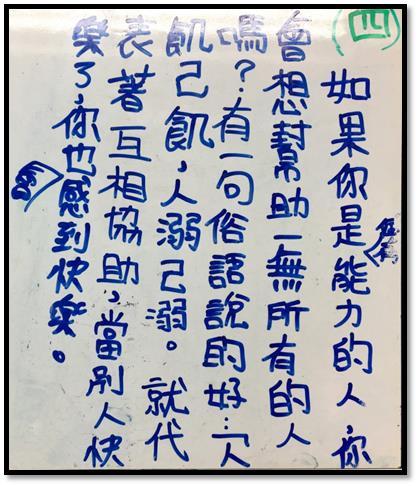 (四)
如果你是個有能力的人,你
會想幫助一無所有的人
嗎?有一句俗語說的好:「人
飢己飢,人溺己溺。就代
表著互相協助,當別人快
樂了,你也會感到快樂。